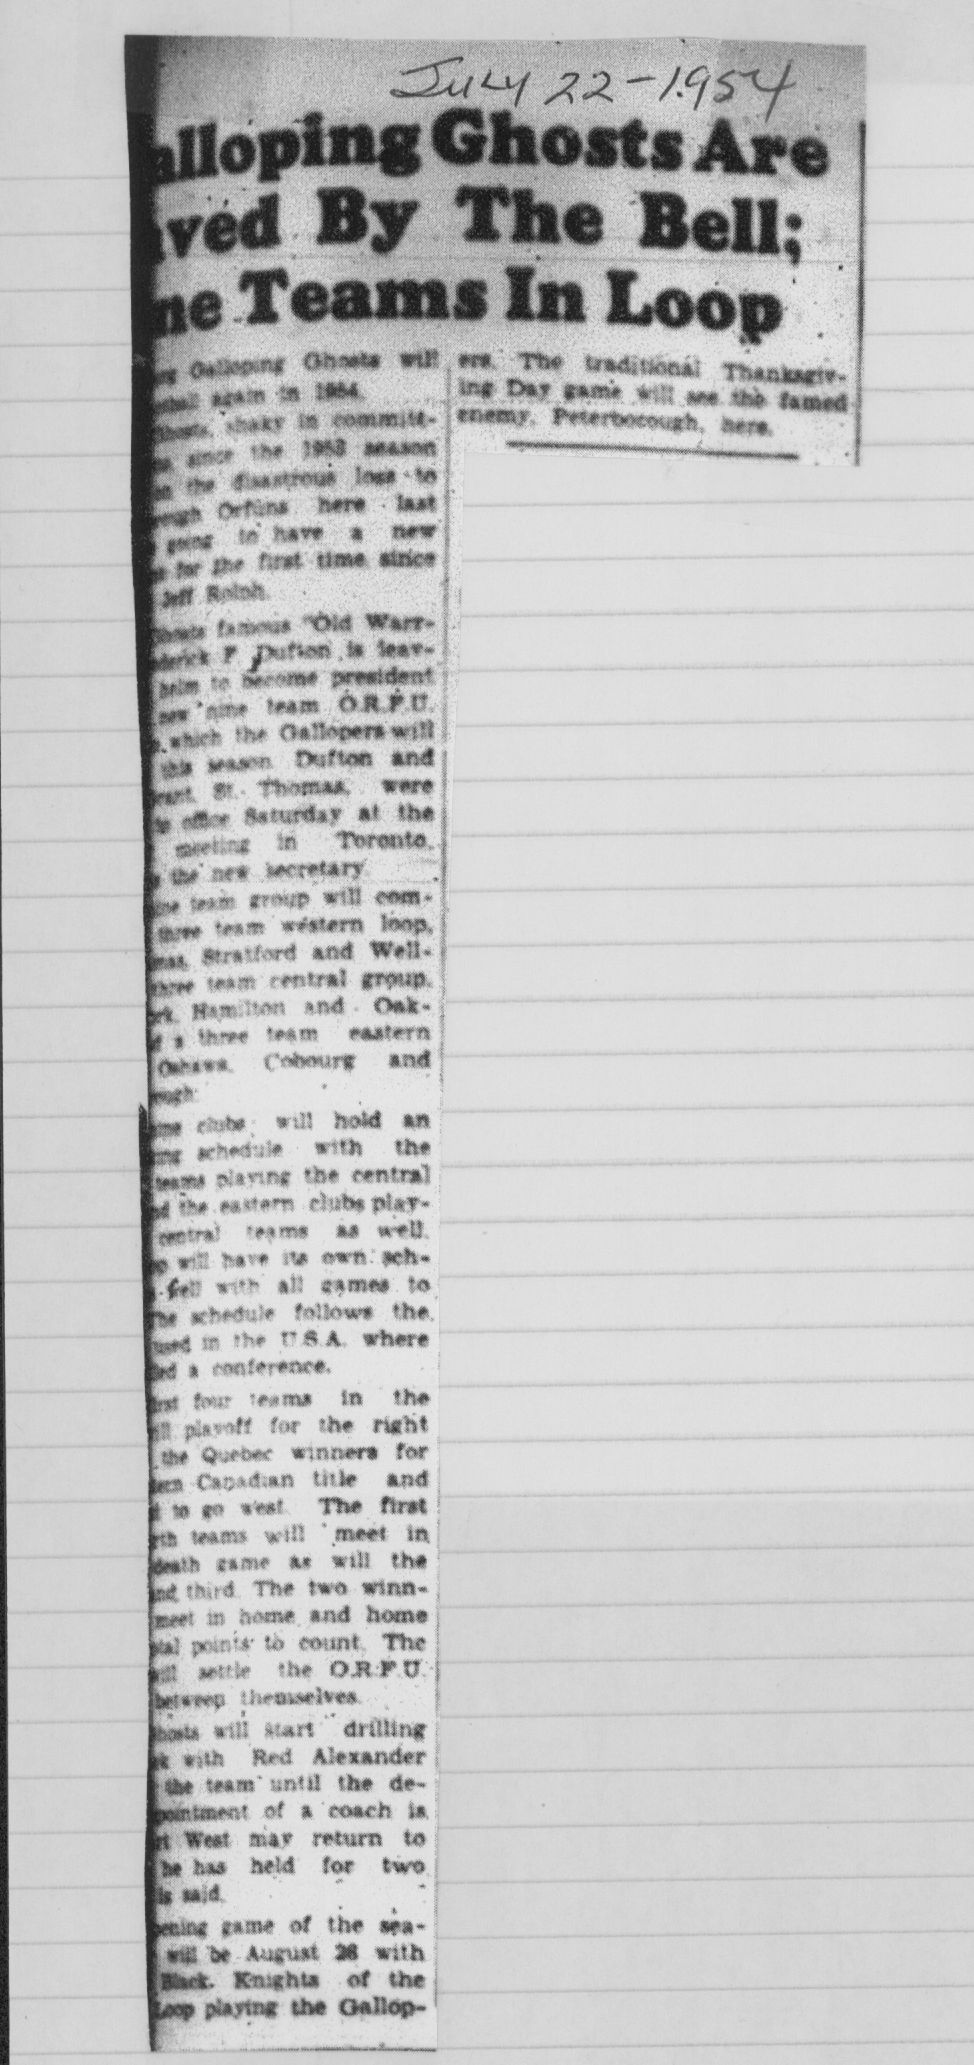 July 22-1954
alloping Ghosts Are
ved By The Bell;
ne Teams In Loop
Galloping Ghosts will
again in 1954.
shaky in committ-
since the 1953 season
the disastrous loss to
Orfuns here last
going to have a new
for the first time since
Jeff Rolph.
famous "Old Warr-
F Dufton is leav-
helm to become president
new nine team O.R.F.U.
which the Gallopers will
this season. Dufton and
St. Thomas, were
office Saturday at the
meeting in Toronto.
the new secretary.
team group will com-
three team western loop,
Stratford and Well-
three team central group,
Hamilton and Oak-
a three team eastern
Oshawa, Cobourg and
ough.
clubs will hold an
schedule with the
teams playing the central
the eastern clubs play-
central teams as well.
will have its own sch-
with all games to
schedule follows the
used in the U.S.A. where
a conference.
four teams in the
playoff for the right
the Quebec winners for
Canadian title and
to go west. The first
teams will meet in
death game as will the
third. The two winn-
meet in home and home
points to count. The
settle the O.R.F.U.
between themselves.
will start drilling
with Red Alexander
the team until the de-
pointment of a coach is
West may return to
he has held for two
is said.
ening game of the sea-
will be August 28 with
Black Knights of the
Loop playing the Gallop-
ers. The traditional Thanksgiv-
ing Day game will see the famed
enemy, Peterborough, here.